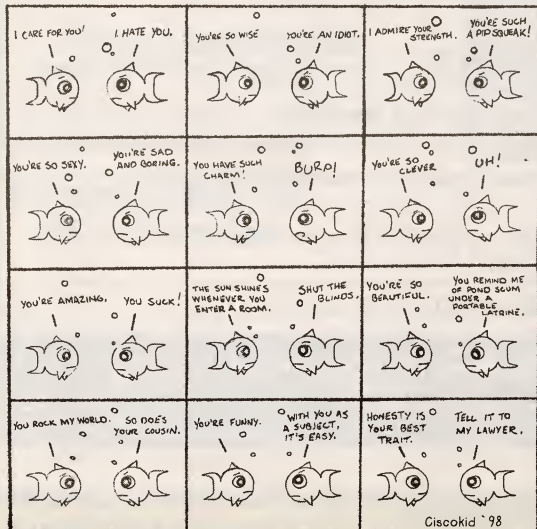 I CARE FOR YOU!
I HATE YOU.
YOU'RE SO WISE
YOU'RE AN IDIOT.
I ADMIRE YOUR
STRENGTH.
YOU'RE SUCH
A PIPSQUEAK!
YOU'RE SO SEXY.
YOU'RE SAD
AND BORING.
YOU HAVE SUCH
CHARM!
BURP!
YOU'RE SO
CLEVER
UH!
YOU'RE AMAZING.
YOU SUCK!
THE SUN SHINES
WHENEVER YOU
ENTER A ROOM.
SHUT THE
BLINDS.
YOU'RE SO
BEAUTIFUL.
YOU REMIND ME
OF POND SCUM
UNDER A
PORTABLE
LATRINE.
YOU ROCK MY WORLD.
SO DOES
YOUR COUSIN.
YOU'RE FUNNY.
WITH YOU AS
A SUBJECT,
IT'S EASY.
HONESTY IS
YOUR BEST
TRAIT.
TELL IT TO
MY LAWYER.
Ciscokid '98